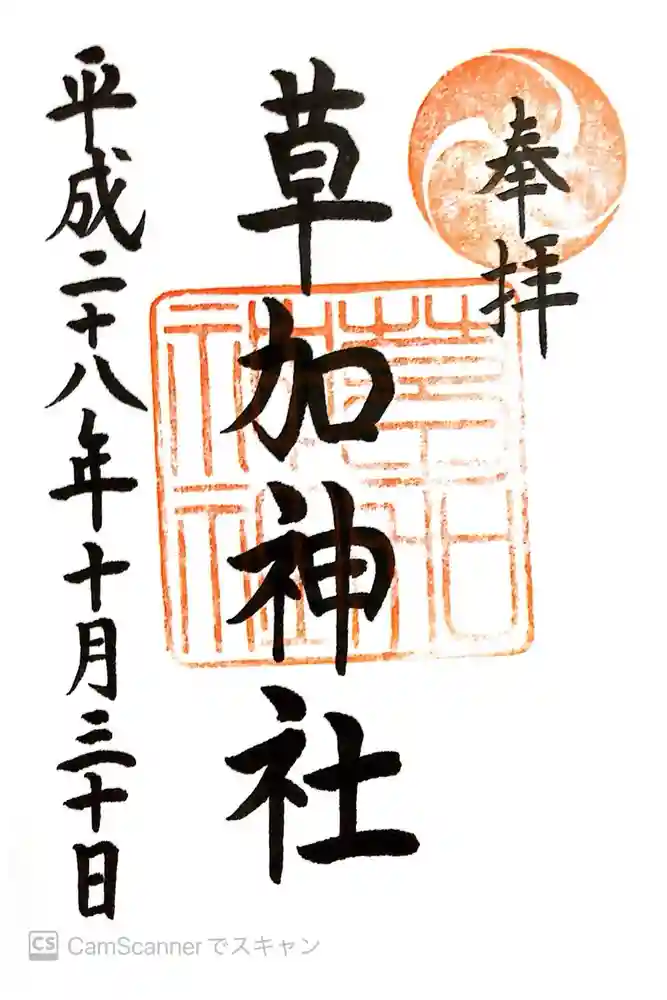 奉拝
草加神社
平成二十八年十月三十日
CS CamScannerでスキャン